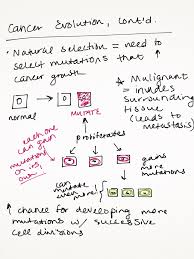 Cancer Evolution, Cont'd.
• Natural selection = need to
select mutations that ↑
cancer growth
* Malignant
= invades
surrounding
tissue
(leads to
metastasis)
normal
MUTATE
proliferates
each one
can gain
mutations
on its
own
gains more
mutations
can
mutate
even
more
↑ chance for developing more
mutations w/ successive
cell divisions